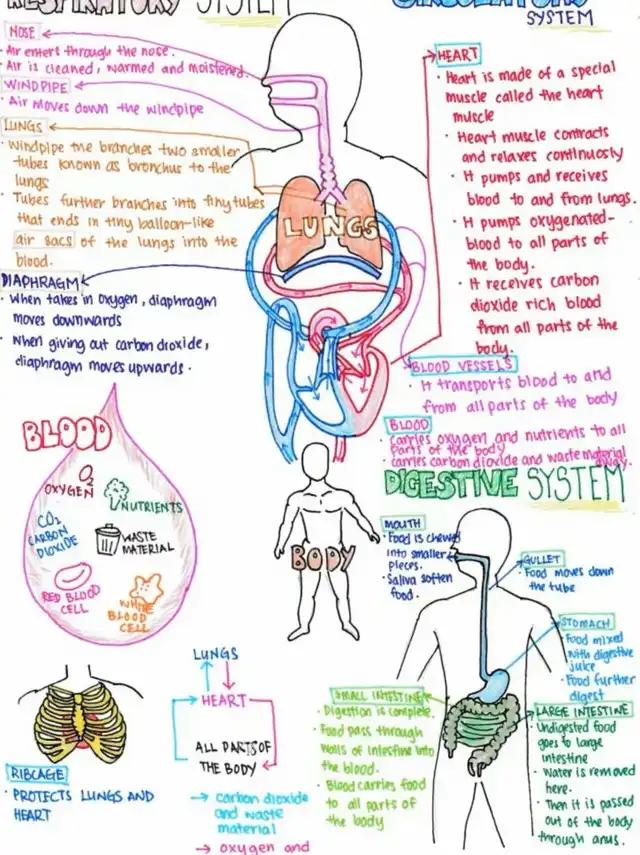 RESPIRATORY SYSTEM
NOSE
• Air enters through the nose.
• Air is cleaned, warmed and moistened.
WINDPIPE
• Air moves down the windpipe
LUNGS
• Windpipe the branches two smaller
tubes known as bronchus to the
lungs
• Tubes further branches into tiny tubes
that ends in tiny balloon-like
air sacs of the lungs into the
blood.
DIAPHRAGM
• When takes in oxygen, diaphragm
moves downwards
• When giving out carbon dioxide,
diaphragm moves upwards.
LUNGS
CIRCULATORY
SYSTEM
HEART
• Heart is made of a special
muscle called the heart
muscle
• Heart muscle contracts
and relaxes continuosly
• It pumps and receives
blood to and from lungs.
• It pumps oxygenated-
blood to all parts of
the body.
• It receives carbon
dioxide rich blood
from all parts of the
body.
BLOOD VESSELS
• It transports blood to and
from all parts of the body
BLOOD
• carries oxygen and nutrients to all
parts of the body
• carries carbon dioxide and waste material
away.
BLOOD
O2
OXYGEN
NUTRIENTS
CO2
CARBON
DIOXIDE
WASTE
MATERIAL
RED BLOOD
CELL
WHITE
BLOOD
CELL
BODY
DIGESTIVE SYSTEM
MOUTH
• Food is chewed
into smaller
pieces.
• Saliva soften
food.
GULLET
• Food moves down
the tube
STOMACH
• Food mixed
with digestive
juice
• Food further
digest
SMALL INTESTINE
• Digestion is complete.
• Food pass through
walls of intestine into
the blood.
• Blood carries food
to all parts of
the body
LARGE INTESTINE
• Undigested food
goes to large
intestine
• Water is removed
here.
• Then it is passed
out of the body
through anus.
RIBCAGE
• PROTECTS LUNGS AND
HEART
LUNGS
HEART
ALL PARTS OF
THE BODY
→ carbon dioxide
and waste
material
→ oxygen and